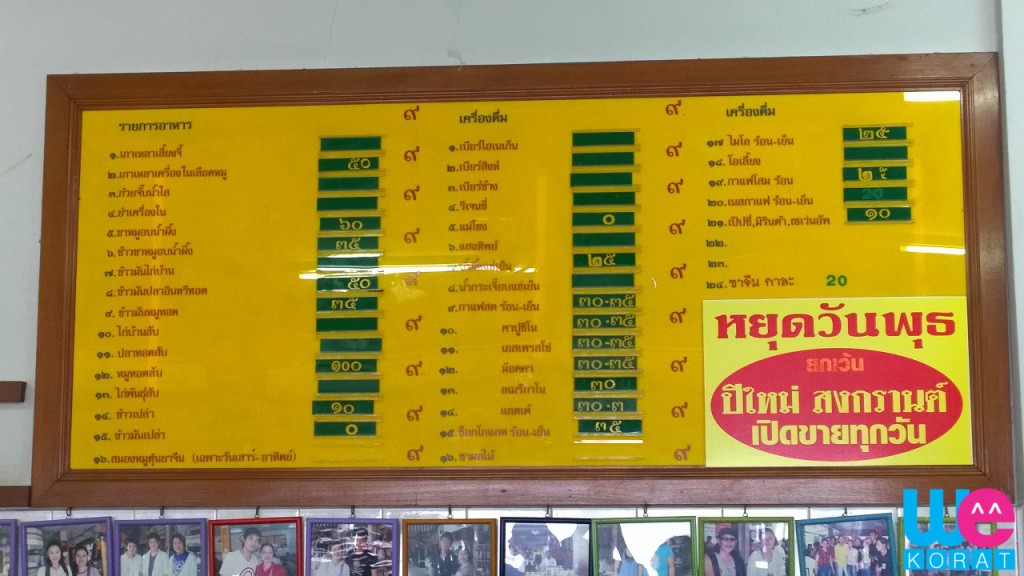 รายการอาหาร
๑. เกาเหลาเลี้ยงจี้
๒. เกาเหลาเครื่องในเลือดหมู ๕๐
๓. ก๋วยจั๊บน้ำใส
๔. ยำเครื่องใน
๕. ขาหมูอบน้ำผึ้ง ๖๐
๖. ข้าวขาหมูอบน้ำผึ้ง ๓๕
๗. ข้าวมันไก่บ้าน
๘. ข้าวมันปลาอินทรีทอด ๕๐
๙. ข้าวมันหมูทอด ๓๕
๑๐. ไก่บ้านสับ
๑๑. ปลาทอดสับ
๑๒. หมูทอดสับ ๑๐๐
๑๓. ไก่พันธุ์สับ
๑๔. ข้าวเปล่า ๑๐
๑๕. ข้าวมันเปล่า ๐
๑๖. สมองหมูตุ๋นยาจีน (เฉพาะวันเสาร์-อาทิตย์)
๙
๙
๙
๙
๙
๙
๙
๙
๙
เครื่องดื่ม
๑. เบียร์ไฮเนเก้น
๒. เบียร์สิงห์
๓. เบียร์ช้าง
๔. รีเจนซี่
๕. แม่โขง ๐
๖. แสงทิพย์
๒๕
๘. น้ำกระเจี๊ยบแช่เย็น
๙. กาแฟสด ร้อน-เย็น ๓๐-๓๕
๑๐. คาปูชิโน ๓๐-๓๕
๑๑. เอสเพรสโซ่ ๓๐-๓๕
๑๒. ม็อคคา ๓๐-๓๕
๑๓. อเมริกาโน ๓๐
๑๔. แลตเต้ ๓๐-๓
๑๕. ช็อกโกแลต ร้อน-เย็น ๓๕
๑๖. ชาผลไม้
๙
๙
๙
๙
๙
๙
๙
๙
๙
เครื่องดื่ม
๑๗ ไมโล ร้อน-เย็น ๒๕
๑๘. โอเลี้ยง
๑๙. กาแฟโสม ร้อน ๒๕
๒๐. เนสกาแฟ ร้อน-เย็น 20
๒๑. เป๊ปซี่,มิรินด้า,เซเว่นอัพ ๑๐
๒๒.
๒๓.
๒๔. ชาจีน กาละ 20
หยุดวันพุธ
ยกเว้น
ปีใหม่ สงกรานต์
เปิดขายทุกวัน
we
KORAT